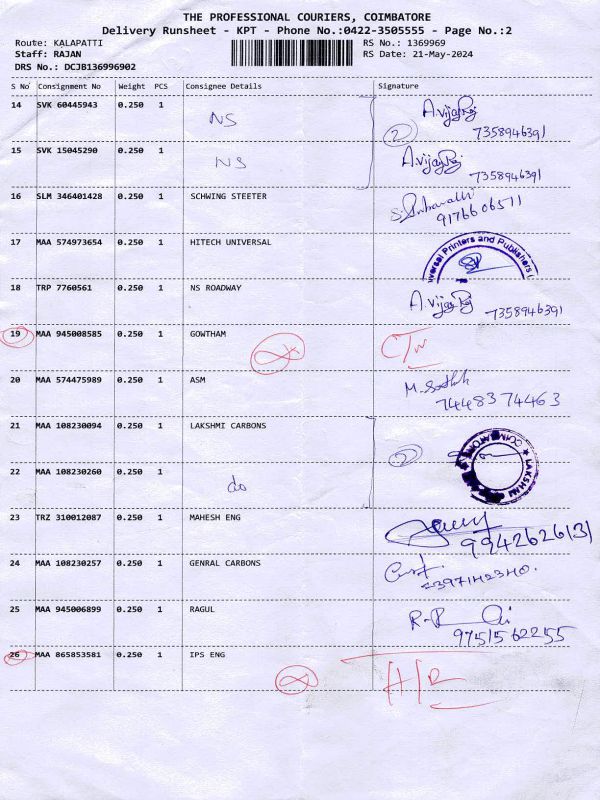 THE PROFESSIONAL COURIERS, COIMBATORE
Delivery Runsheet - KPT - Phone No.:0422-3505555 - Page No.:2
Route: KALAPATTI RS No.: 1369969
Staff: RAJAN RS Date: 21-May-2024
DRS No.: DCJB136996902
S No Consignment No Weight PCS Consignee Details Signature
14 SVK 60445943 0.250 1 NS A.Vijay Raj
② 7358946391
15 SVK 15045290 0.250 1 NS A.Vijay Raj
7358946391
16 SLM 346401428 0.250 1 SCHWING STEETER
9176606511
17 MAA 574973654 0.250 1 HITECH UNIVERSAL
Universal Printers and Publishers
18 TRP 7760561 0.250 1 NS ROADWAY A.Vijay Raj 7358946391
19 MAA 945008585 0.250 1 GOWTHAM
20 MAA 574475989 0.250 1 ASM
7448374463
21 MAA 108230094 0.250 1 LAKSHMI CARBONS
② LAKSHMI
22 MAA 108230260 0.250 1 do
23 TRZ 310012087 0.250 1 MAHESH ENG
9942626131
24 MAA 108230257 0.250 1 GENRAL CARBONS
25 MAA 945006899 0.250 1 RAGUL
9751562255
26 MAA 865853581 0.250 1 IPS ENG